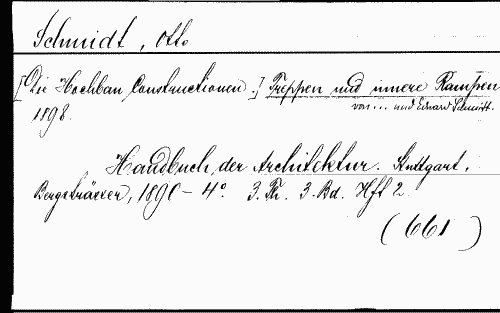 Schmidt, Otto
[Die Hochbau Constructionen.] Treppen und innere Rampen
von ... und Eduard Schmitt.
1898.
Handbuch der Architektur. Stuttgart,
Bergsträsser, 1890 - 4° 3. Th. 3. Bd. Hft 2
(661)